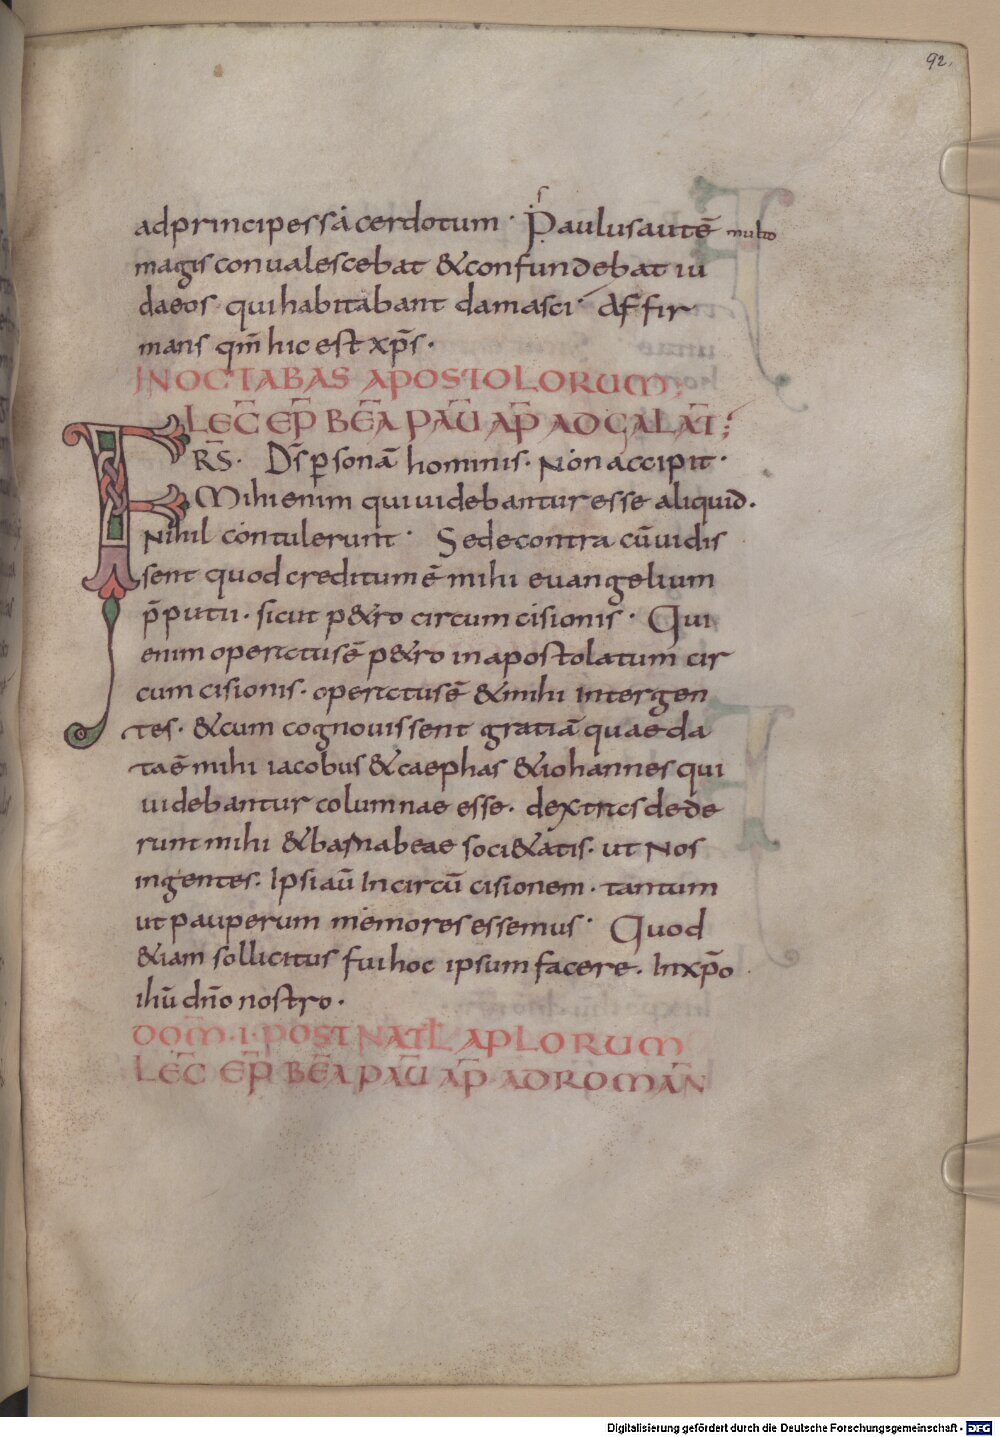 92.
ad principes sacerdotum · Paulus autē multo
magis conualescebat &confundebat iu
daeos · qui habitabant damasci · Affir
mans qm̄ hic est xp̄s ·
IN OCTABAS APOSTOLORUM;
LEC̄ EP̄ BEĀ PAŪ AP̄ AD GALAT̄;
FRS̄ · Ds̄ personā hominis · Non accipit ·
Mihi enim qui uidebantur esse aliquid ·
Nihil contulerunt · Sed econtra cū uidis
sent quod creditum ē mihi euangelium
p̄putii · sicut p&ro circumcisionis · Qui
enim operatus ē p&ro in apostolatum cir
cumcisionis · operatus ē &mihi inter gen
tes · &cum cognouissent gratiā quae da
ta ē mihi iacobus &caephas &iohannes qui
uidebantur columnae esse · dextras dede
runt mihi &barnabeae soci&atis · ut Nos
in gentes · Ipsi aū In circū cisionem · tantum
ut pauperum memores essemus · Quod
&iam sollicitus fui hoc ipsum facere · In xp̄o
ihū dn̄o nostro ·
DOM̄ · I · POST NATL̄ APLORUM
LEC̄ EP̄ BEĀ PAŪ AP̄ AD ROMAN̄
Digitalisierung gefördert durch die Deutsche Forschungsgemeinschaft - DFG